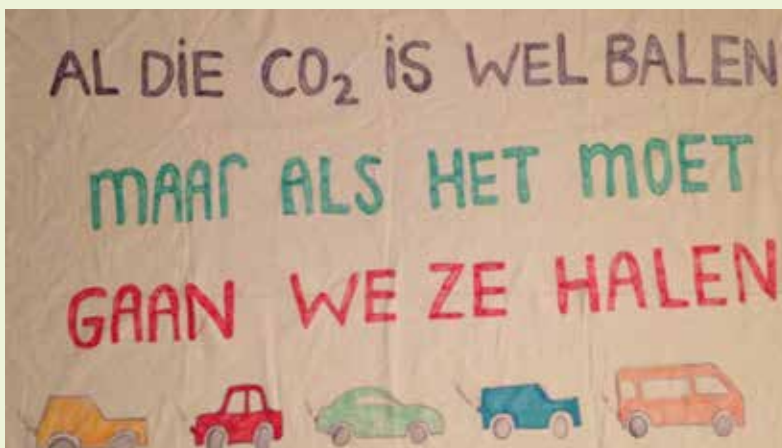 AL DiE CO₂ iS WEL BALEN
MAAR ALS HET MOET
GAAN WE ZE HALEN